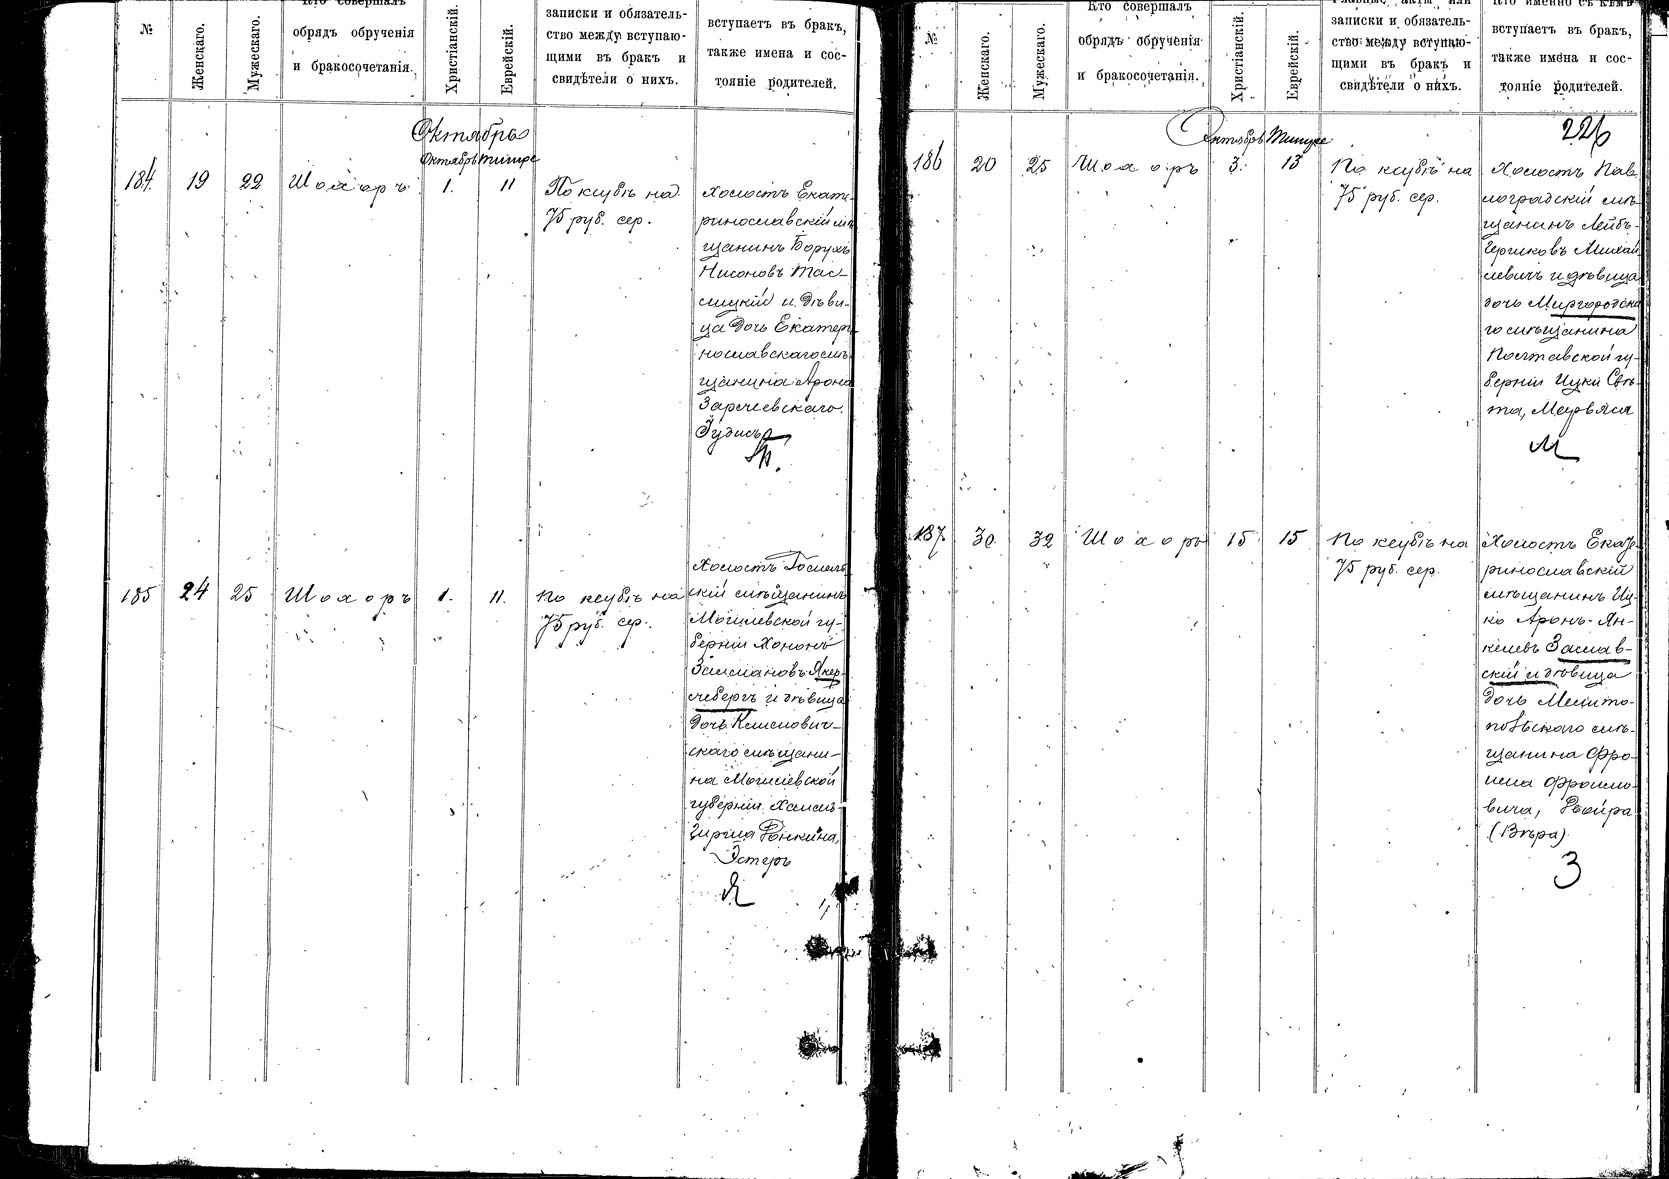 №
Женскаго.
Мужескаго.
Кто совершалъ
обрядъ обрученія
и бракосочетанія.
Христіанскій.
Еврейскій.
записки и обязатель-
ство между вступаю-
щими въ бракъ и
свидѣтели о нихъ.
вступаетъ въ бракъ,
также имена и сос-
тояніе родителей.
Октябрь
Октябрь Тишре
184. 19 22 Шохоръ 1. 11
По ксубѣ на
75 руб. сер.
Холостъ Екате-
ринославскій мѣ-
щанинъ Борухъ
Нисоновъ Тас-
лицкій и дѣви-
ца дочь Екатери-
нославскаго мѣ-
щанина Арона
Заречевскаго.
Іудисъ
Т.
185 24 25 Шохоръ 1. 11.
По ксубѣ на
75 руб. сер.
Холостъ Гомель-
скій мѣщанинъ
Могилевской гу-
берніи Хононъ
Залмановъ Якер-
чебергъ и дѣвица
дочь Климович-
скаго мѣщани-
на Могилевской
губерніи Хаимъ-
Гирша Рѣнкина,
Эстеръ
Я
№
Женскаго.
Мужескаго.
Кто совершалъ
обрядъ обрученія
и бракосочетанія.
Христіанскій.
Еврейскій.
главные акты или
записки и обязатель-
ство между вступаю-
щими въ бракъ и
свидѣтели о нихъ.
Кто именно съ кѣмъ
вступаетъ въ бракъ,
также имена и сос-
тояніе родителей.
226
Октябрь Тишре
186 20 25 Шохоръ 3. 13
По ксубѣ на
75 руб. сер.
Холостъ Пав-
лоградскій мѣ-
щанинъ Лейбъ-
Гершковъ Михай-
левичъ и дѣвица
дочь Миргородска-
го мѣщанина
Полтавской гу-
берніи Ицки Свѣ-
та, Меръяся
М
187. 30 32 Шохоръ 15 15
По ксубѣ на
75 руб. сер.
Холостъ Екате-
ринославскій
мѣщанинъ Иц-
ко Аронъ-Ян-
келевъ Заслав-
скій и дѣвица
дочь Мелито-
польскаго мѣ-
щанина Фро-
има Фроимо-
вича, Двойра
(Вѣра)
З